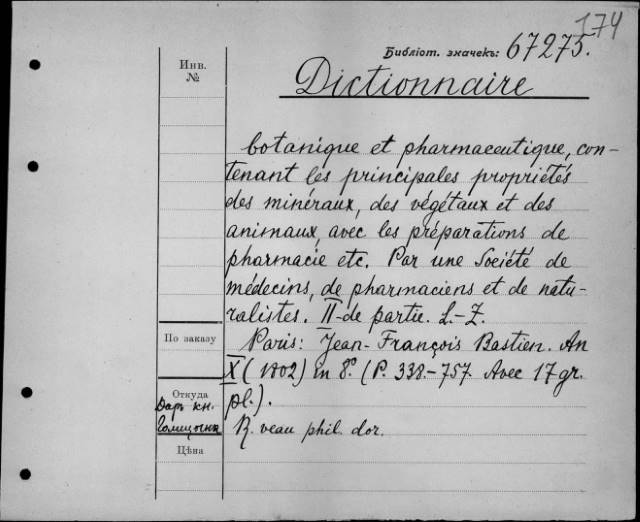 174
Библіот. значекъ: 67275.
Инв. №
Dictionnaire
botanique et pharmaceutique, con-
tenant les principales propriétés
des minéraux, des végétaux et des
animaux, avec les préparations de
pharmacie etc. Par une Société de
médecins, de pharmaciens et de natu-
ralistes. II-de partie. L.-Z.
По заказу
Paris: Jean-François Bastien. An
X (1802) in 8º. (P. 338.-757. Avec 17 gr.
pl.).
Откуда
Даръ кн.
Голицына
R. veau phil. dor.
Цѣна